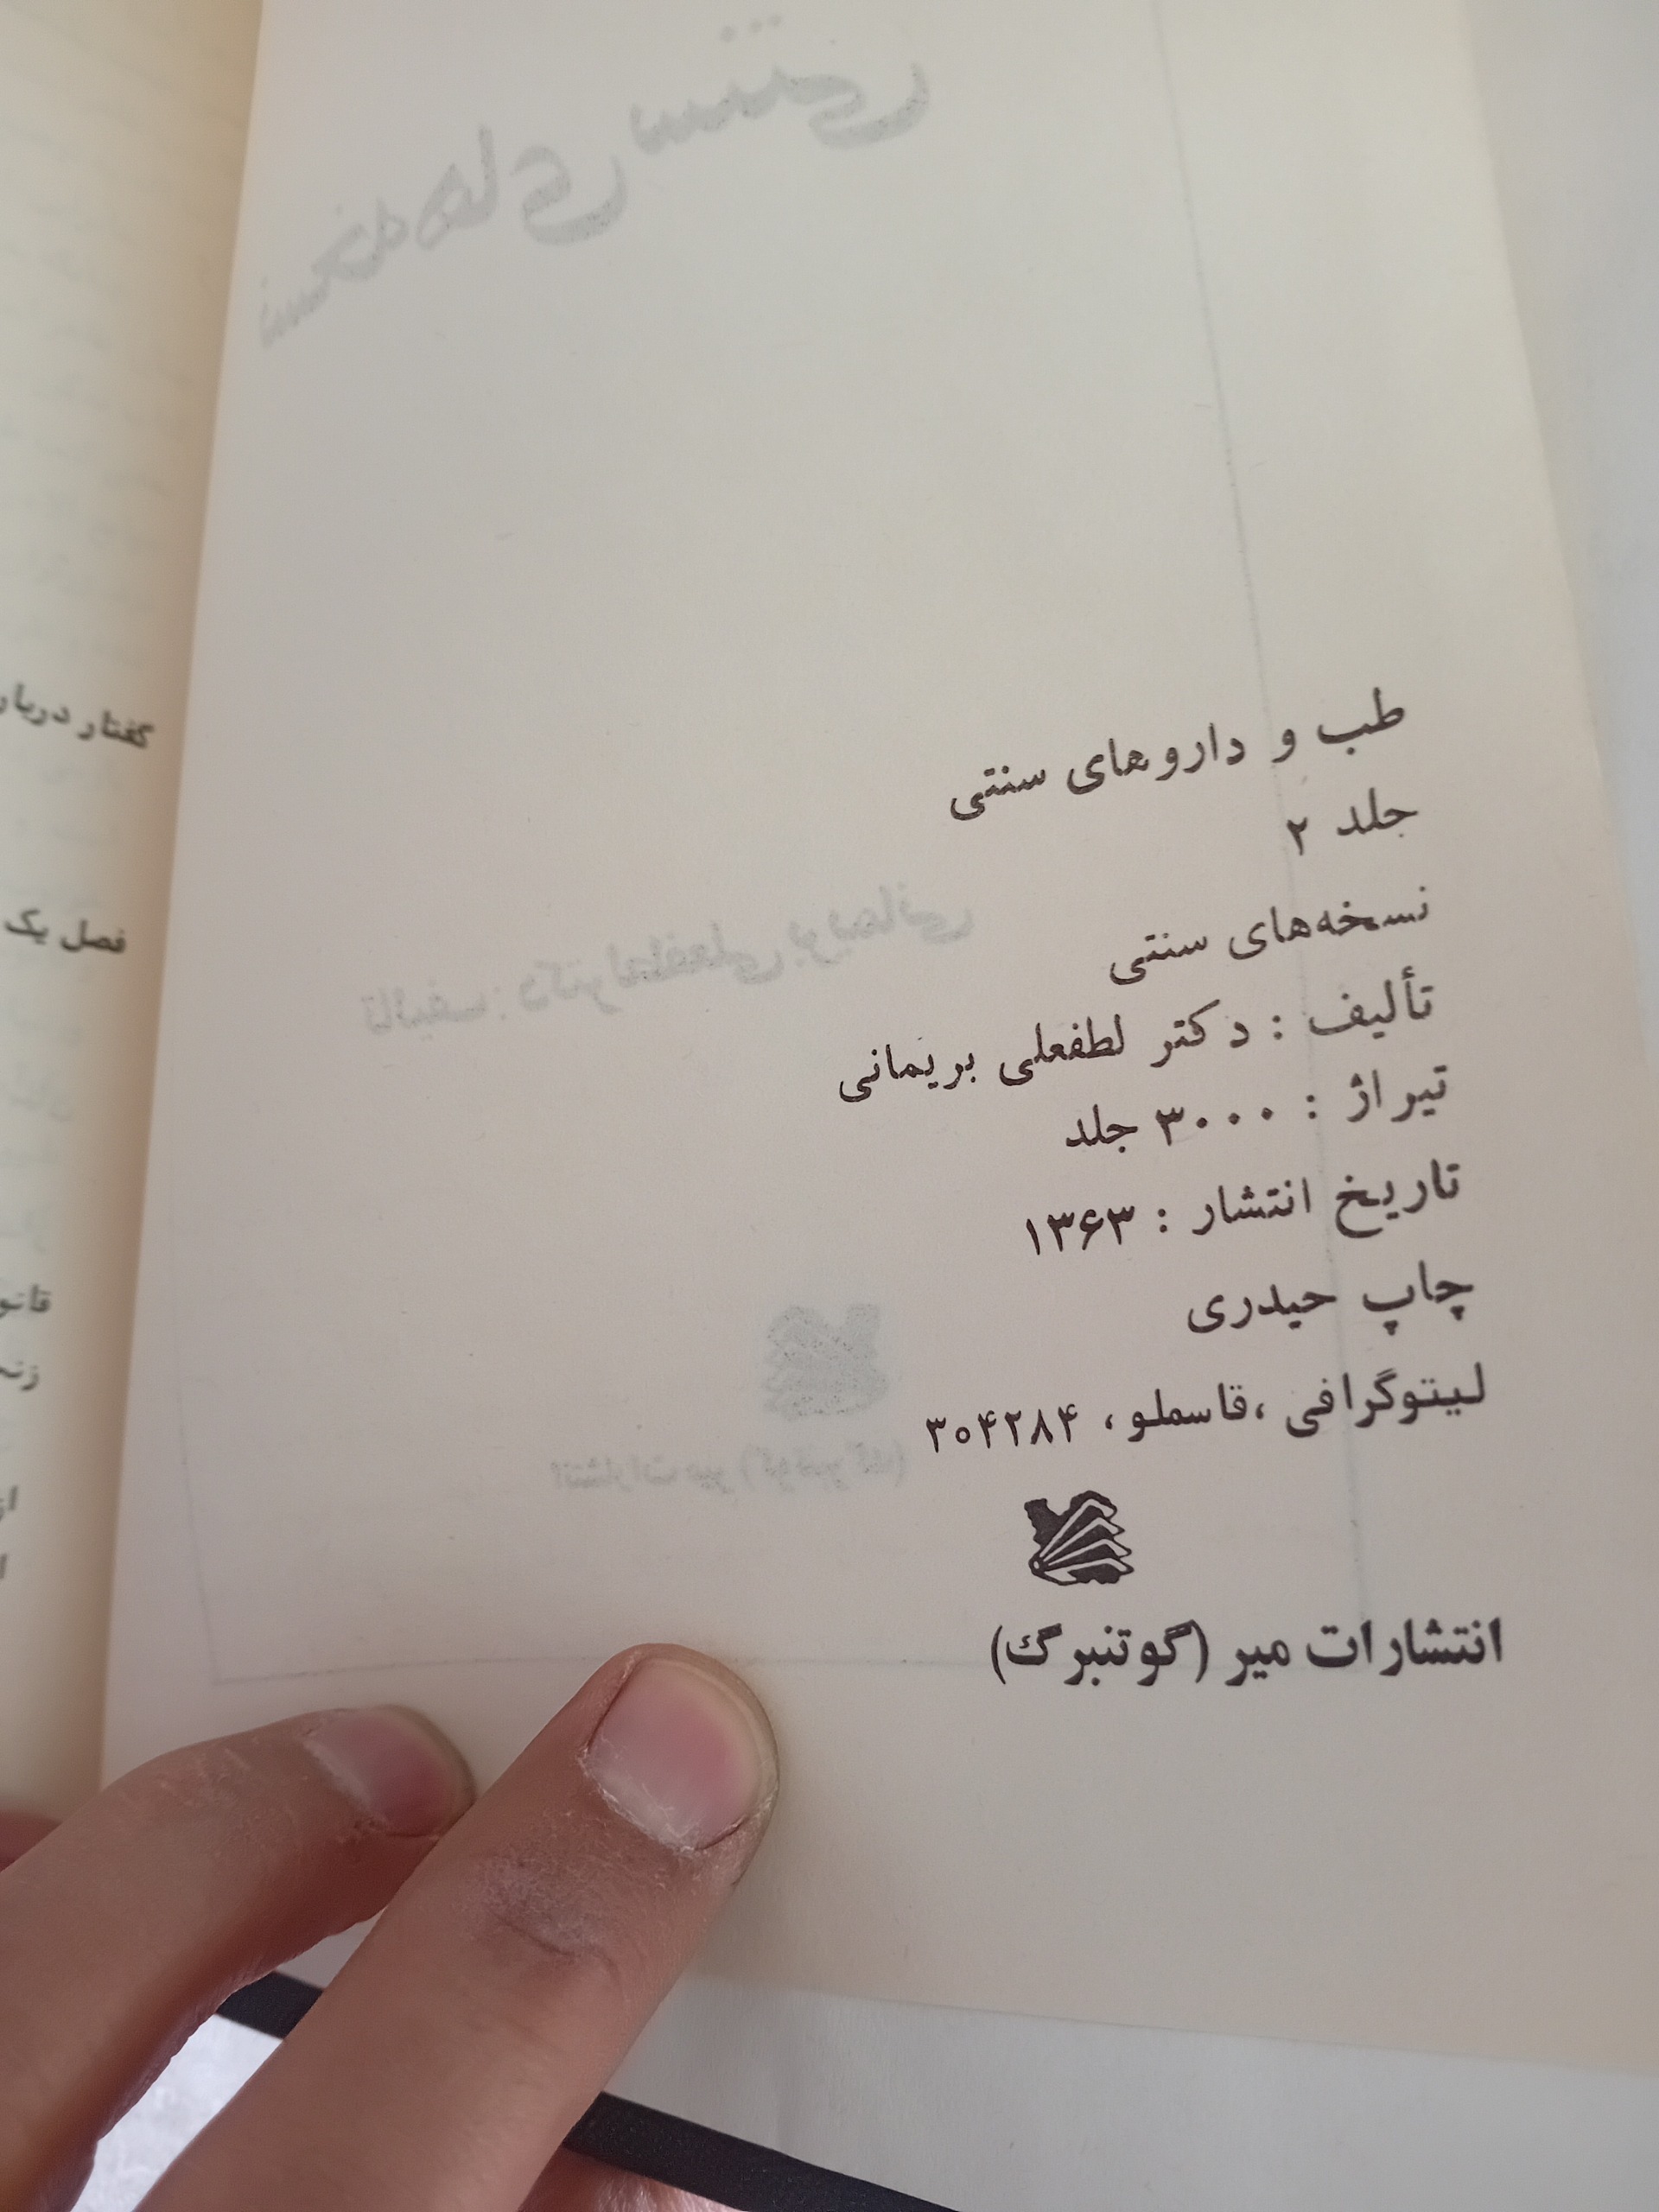 طب و داروهای سنتی
جلد ۲
نسخه‌های سنتی
تألیف : دکتر لطفعلی بریمانی
تیراژ : ۳۰۰۰ جلد
تاریخ انتشار : ۱۳۶۳
چاپ حیدری
لیتوگرافی ،قاسملو، ۳۰۴۲۸۴
انتشارات میر (گوتنبرگ)
گفتار دربار
فصل یک